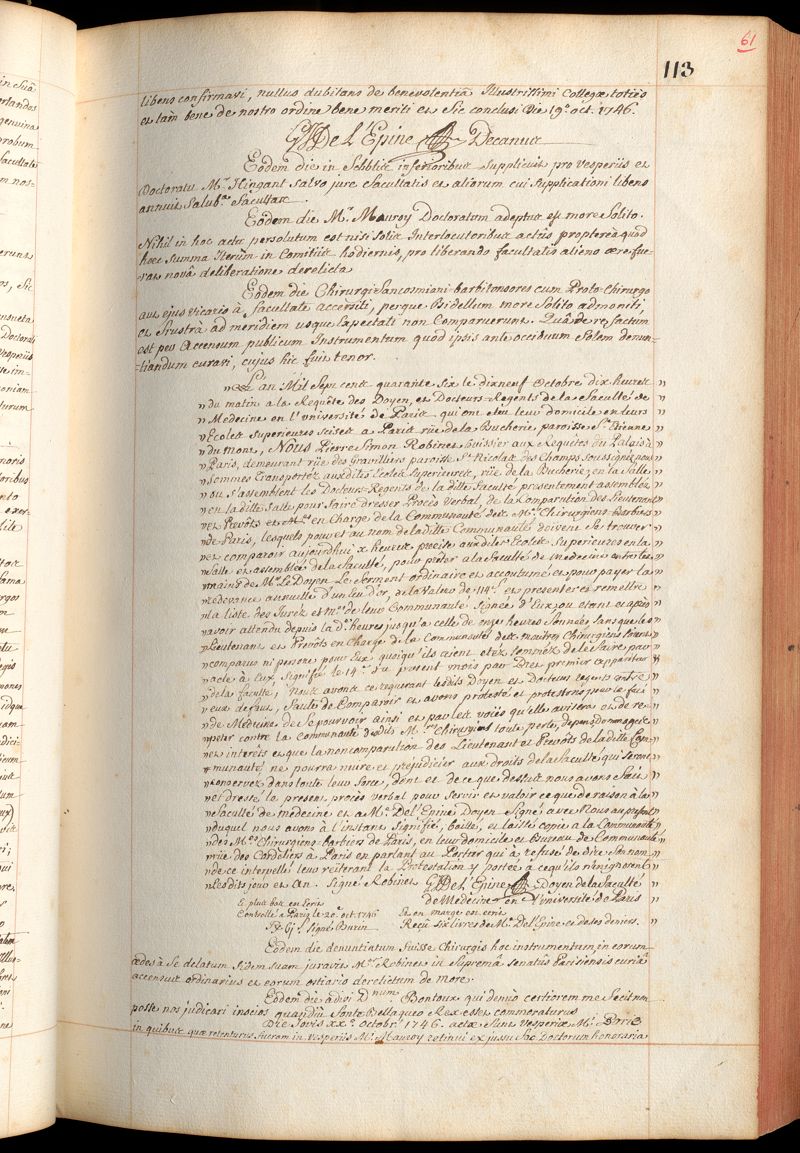 61
113
libens confirmavi, nullus dubitans de benevolentiâ Illustrissimi Collegæ toties
et tam bene de nostro ordine bene meriti et sic conclusi die 19ª oct. 1746.
GJDe l'Epine Decanus
Eodem die in Schôlis inferioribus supplicuit pro vesperiis et
Doctoratu Mr. Hingant salvo jure facultatis et aliorum cui supplicationi libens
annuit Salub. facultas.
Eodem die Mr. Mauroy Doctoratum adeptus est more solito.
Nihil in hoc actu persolutum est nisi solis Interlocutoribus actûs propterea quod
hoec summa iterùm in Comitiis hodiernis, pro liberando facultatis alieno ære fue-
rat novâ deliberatione derelicta
Eodem die Chirurgi Sancosmiani-barbitonsores cum Proto-Chirurgo
aut ejus vicario à facultate accersiti, perque Bidellum more solito admoniti,
et frustrà ad meridiem usque expectati non comparuerunt. Quâ de re factum
est per Accensum publicum Instrumentum quod ipsis ante occiduum solem denun-
tiandum curavi, cujus hic fuit tenor.
„ L'an Mil Sept cent quarante six le dixneuf Octobre dix heures „
„ du matin a la Requête des Doyen, et Docteurs-Regents de la faculté de „
„ Medecine en l'université de Paris qui ont eleu leur domicile en leurs „
„ Ecoles superieures scises a Paris rüe de la Bucherie, paroisse St. Etienne „
„ du mont, NOUS Pierre Simon Robinet huissier aux Requêtes du Palais à „
„ Paris, demeurant rüe des Gravilliers paroisse St. Nicolas des Champs soussigné nous „
„ sommes Transportez auxdites Ecoles Superieures, rüe de la Bucherie, en la Salle „
„ ou s'assemblent les Docteurs-Regents de la ditte faculté presentement assemblez „
„ en la ditte Salle pour faire dresser Procès verbal, de la Comparution des Lieutenant „
„ et Prevôts et Mes. en Charge de la Communauté des Mes. Chirurgiens-Barbiers „
„ de Paris, lesquels pour et au nom de la ditte Communauté doivent se trouver „
„ et comparoir aujourdhui x heures precise auxdites Ecoles Superieures en la „
„ salle et assemblée de la faculté, pour prêter a la faculté de Medecine entre les „
„ mains de Mr. Le Doyen le serment ordinaire et accoutumé et pour payer la „
„ redevance annuelle d'un Ecu d'or, de la Valeur de 114s. et presenter et remettre „
„ la liste des Jurez et Mes. de leur Communauté signée d'Eux, ou etant et après „
„ avoir attendu depuis la de. heures jusqu'a celle de onze heures sonnées, sans que les „
„ Lieutenant et Prevôts en Charge de la Communauté des maitres Chirurgiens soient „
„ comparus ni personne pour Eux quoiqu'ils aient etez sommez de le faire par „
„ acte à Eux, signifié le 14e. du present mois par Dies premier appariteur „
„ de la faculté, Nous avons ce requerant lesdits Doyen et Docteurs regents contre „
„ eux defaut, faute de Comparoir et avons protesté et protestons pour la faculté „
„ de Médecine de se pourvoir ainsi et par les voües qu'elle avisera et de re- „
„ peter contre la Communauté desdits Mes. Chirurgiens toute perte, depens Dommages „
„ et interêts et que la non comparution des Lieutenant et Prevôts de la ditte Com- „
„ munauté ne pourra nuire et préjudicier aux droits de la faculté qui seront „
„ conservez dans toute leur force, dont et de ce que dessus nous avons fait „
„ et dressé le present procès verbal pour servir et valoir ce que de raison à la „
„ faculté de médecine et a Mr. De l'Epine Doyen signé avec Nous au present „
„ duquel nous avons à l'instant signifié, baillé, et laissé copie a la Communauté „
„ des Mes. Chirurgiens-barbiers de Paris, en leur domicile et Bureau de Communauté „
„ rüe des Cordeliers a Paris en parlant au Portier qui à refusé de dire son nom „
„ de ce interpellé leur reïterant la Protestation y portée a ce qu'ils n'en ignorent „
„ lesdits jour et An. Signé Robinet GJDe l'Epine Doyen de la faculté „
de Medecine en l'université de Paris „
E plus bas est Ecrit
Controllé a Paris le 20e. oct. 1746 Et en marge est ecrit
signé Burin Reçu six livres de Mr. De l'Epine ce de ses deniers. „
Eodem die denuntiatum fuisse Chirurgis hoc instrumentum in eorum
ædes à se delatum fidem suam juravit Mr. Robinet in supremâ senatûs Parisiensis curiâ
accensus ordinarius et eorum ostiario derelictum de more.
Eodem die adivi Dnum Bontoux qui denuò certiorem me fecit non
posse nos judicari inscios quamdiu fonte Bellaqueo Rex esset commoraturus
Die Jovis xxa. octobr. 1746. actæ sunt vesperiæ Mi.
in quibus quæ retenturus fueram in vesperiis Mi. Mauroy retinui ex jussu Sac Doctorum honoraria